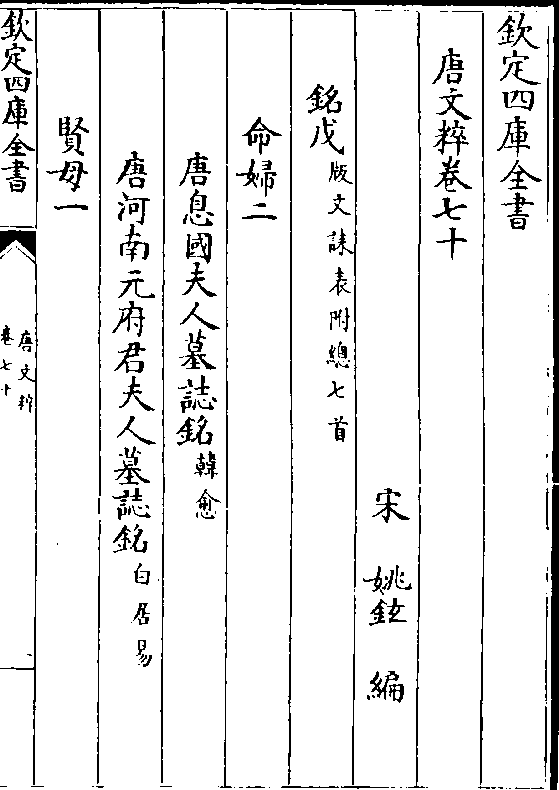 欽定四庫全書
唐文粹卷七十
宋 姚鉉 編
銘戊版文誄表附總七首
命婦二
唐息國夫人墓誌銘韓愈
唐河南元府君夫人墓誌銘白居易
賢母一
欽定四庫全書
唐文粹
卷七十